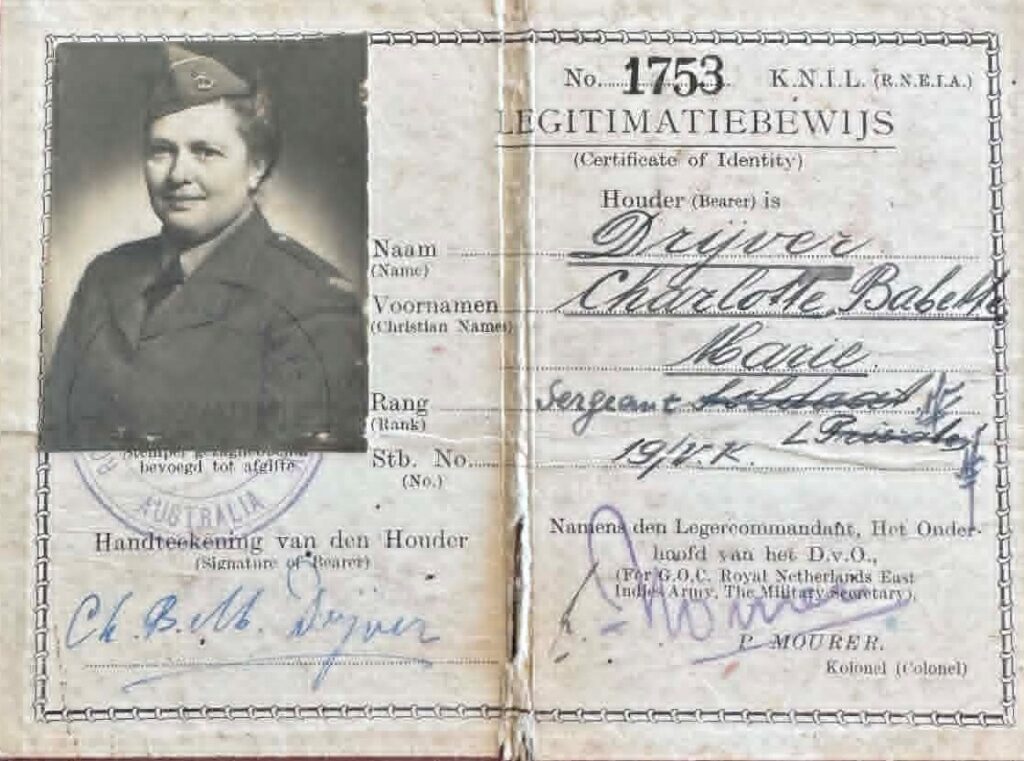 No. 1753 K.N.I.L. (R.N.E.I.A.)
LEGITIMATIEBEWIJS
(Certificate of Identity)
Houder (Bearer) is
Naam Drijver
(Name)
Voornamen Charlotte Babette
(Christian Name)
Marie
Rang Sergeant Soldaat
(Rank)
Stb. No. 19/V.K.
(No.)
Stempel
bevoegd tot afgifte
AUSTRALIA
Handteekening van den Houder
(Signature of Bearer)
Ch. B. M. Drijver
Namens den Legercommandant, Het Onder-
hoofd van het D.v.O.,
(For G.O.C. Royal Netherlands East
Indies Army, The Military Secretary).
P. Mourer
P. MOURER.
Kolonel (Colonel)